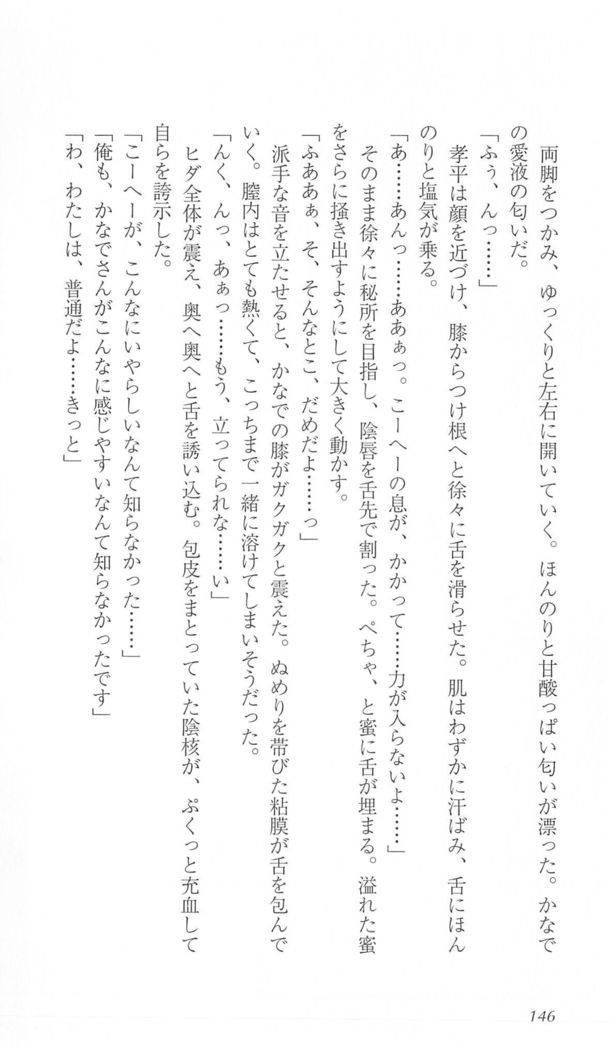 両脚をつかみ、ゆっくりと左右に開いていく。ほんのりと甘酸っぱい匂いが漂った。かなで
の愛液の匂いだ。
「ふぅ、んっ……」
孝平は顔を近づけ、膝からつけ根へと徐々に舌を滑らせた。肌はわずかに汗ばみ、舌にほん
のりと塩気が乗る。
「あ……あんっ……ああぁっ。こーへーの息が、かかって……力が入らないよ……」
そのまま徐々に秘所を目指し、陰唇を舌先で割った。ぺちゃ、と蜜に舌が埋まる。溢れた蜜
をさらに掻き出すようにして大きく動かす。
「ふああぁ、そ、そんなとこ、だめだよ……っ」
派手な音を立たせると、かなでの膝がガクガクと震えた。ぬめりを帯びた粘膜が舌を包んで
いく。膣内はとても熱くて、こっちまで一緒に溶けてしまいそうだった。
「んく、んっ、あぁっ……もう、立ってられな……い」
ヒダ全体が震え、奥へ奥へと舌を誘い込む。包皮をまとっていた陰核が、ぷくっと充血して
自らを誇示した。
「こーへーが、こんなにいやらしいなんて知らなかった……」
「俺も、かなでさんがこんなに感じやすいなんて知らなかったです」
「わ、わたしは、普通だよ……きっと」
146